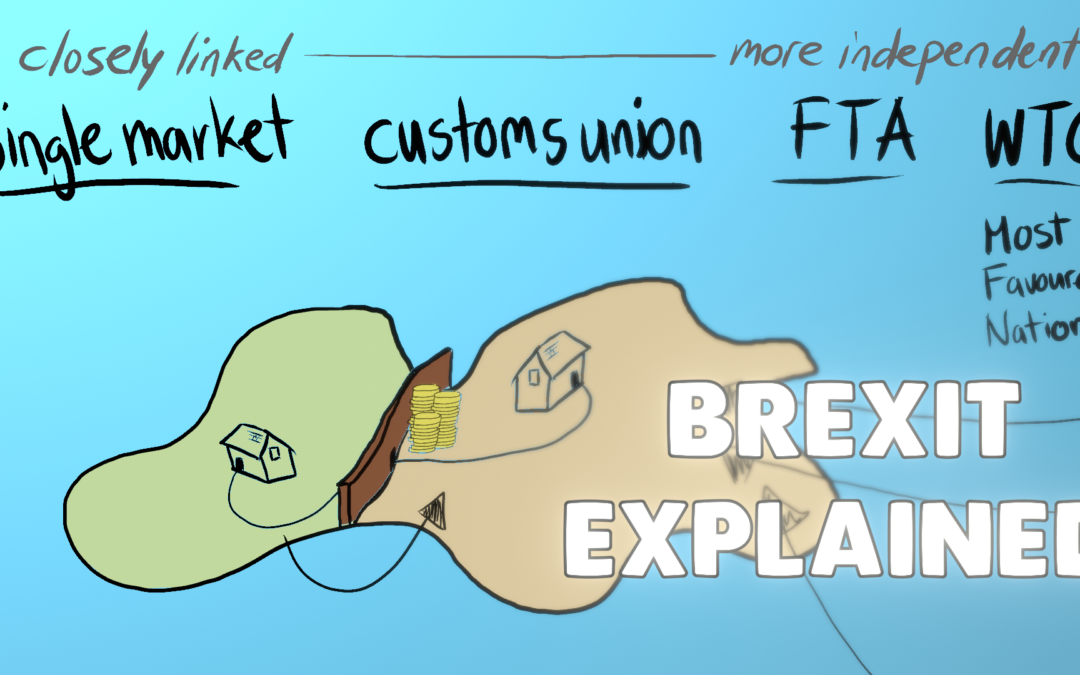 closely linked more independent
single market customs union FTA WTO
Most
Favoure
Nation
BREXIT
EXPLAINED